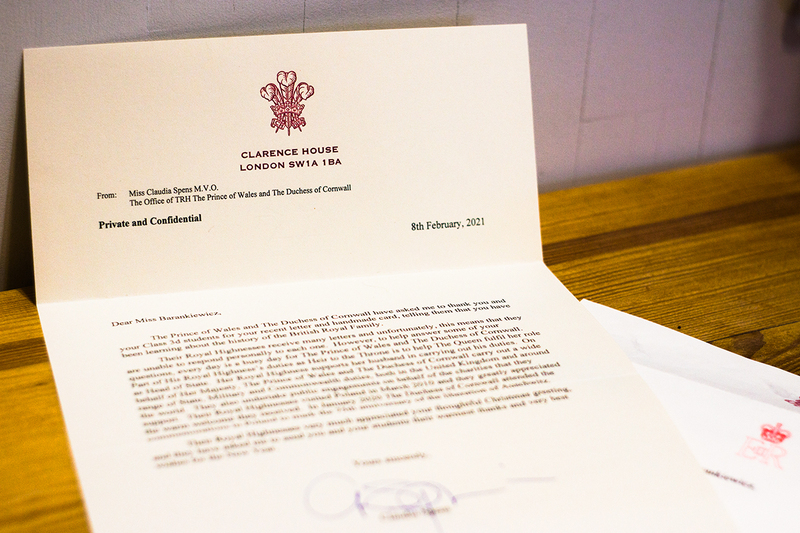 CLARENCE HOUSE
LONDON SW1A 1BA
From: Miss Claudia Spens M.V.O.
The Office of TRH The Prince of Wales and The Duchess of Cornwall
Private and Confidential
8th February, 2021
Dear Miss Barankiewicz,
The Prince of Wales and The Duchess of Cornwall have asked me to thank you and
your Class 3d students for your recent letter and handmade card, telling them that you have
been learning about the history of the British Royal Family.
Their Royal Highnesses receive many letters and unfortunately, this means that they
are unable to respond personally to each one. However, to help answer some of your
questions, every day is a busy day for The Prince of Wales and The Duchess of Cornwall.
Part of His Royal Highness's duties as Heir to the Throne is to help The Queen fulfil her role
as Head of State. Her Royal Highness supports her husband in carrying out his duties. On
behalf of Her Majesty, The Prince of Wales and The Duchess of Cornwall carry out a wide
range of State, Military and Commonwealth duties, both in the United Kingdom and around
the world. They also undertake public engagements on behalf of the charities that they
support. Their Royal Highnesses visited Poland in March 2010 and they greatly appreciated
the warm welcome they received. In January 2020 The Duchess of Cornwall attended the
commemorations in Poland to mark the 75th anniversary of the liberation of Auschwitz.
Their Royal Highnesses very much appreciated your thoughtful Christmas greeting,
and they have asked me to send you and your students their warmest thanks and very best
wishes for the New Year.
Yours sincerely,